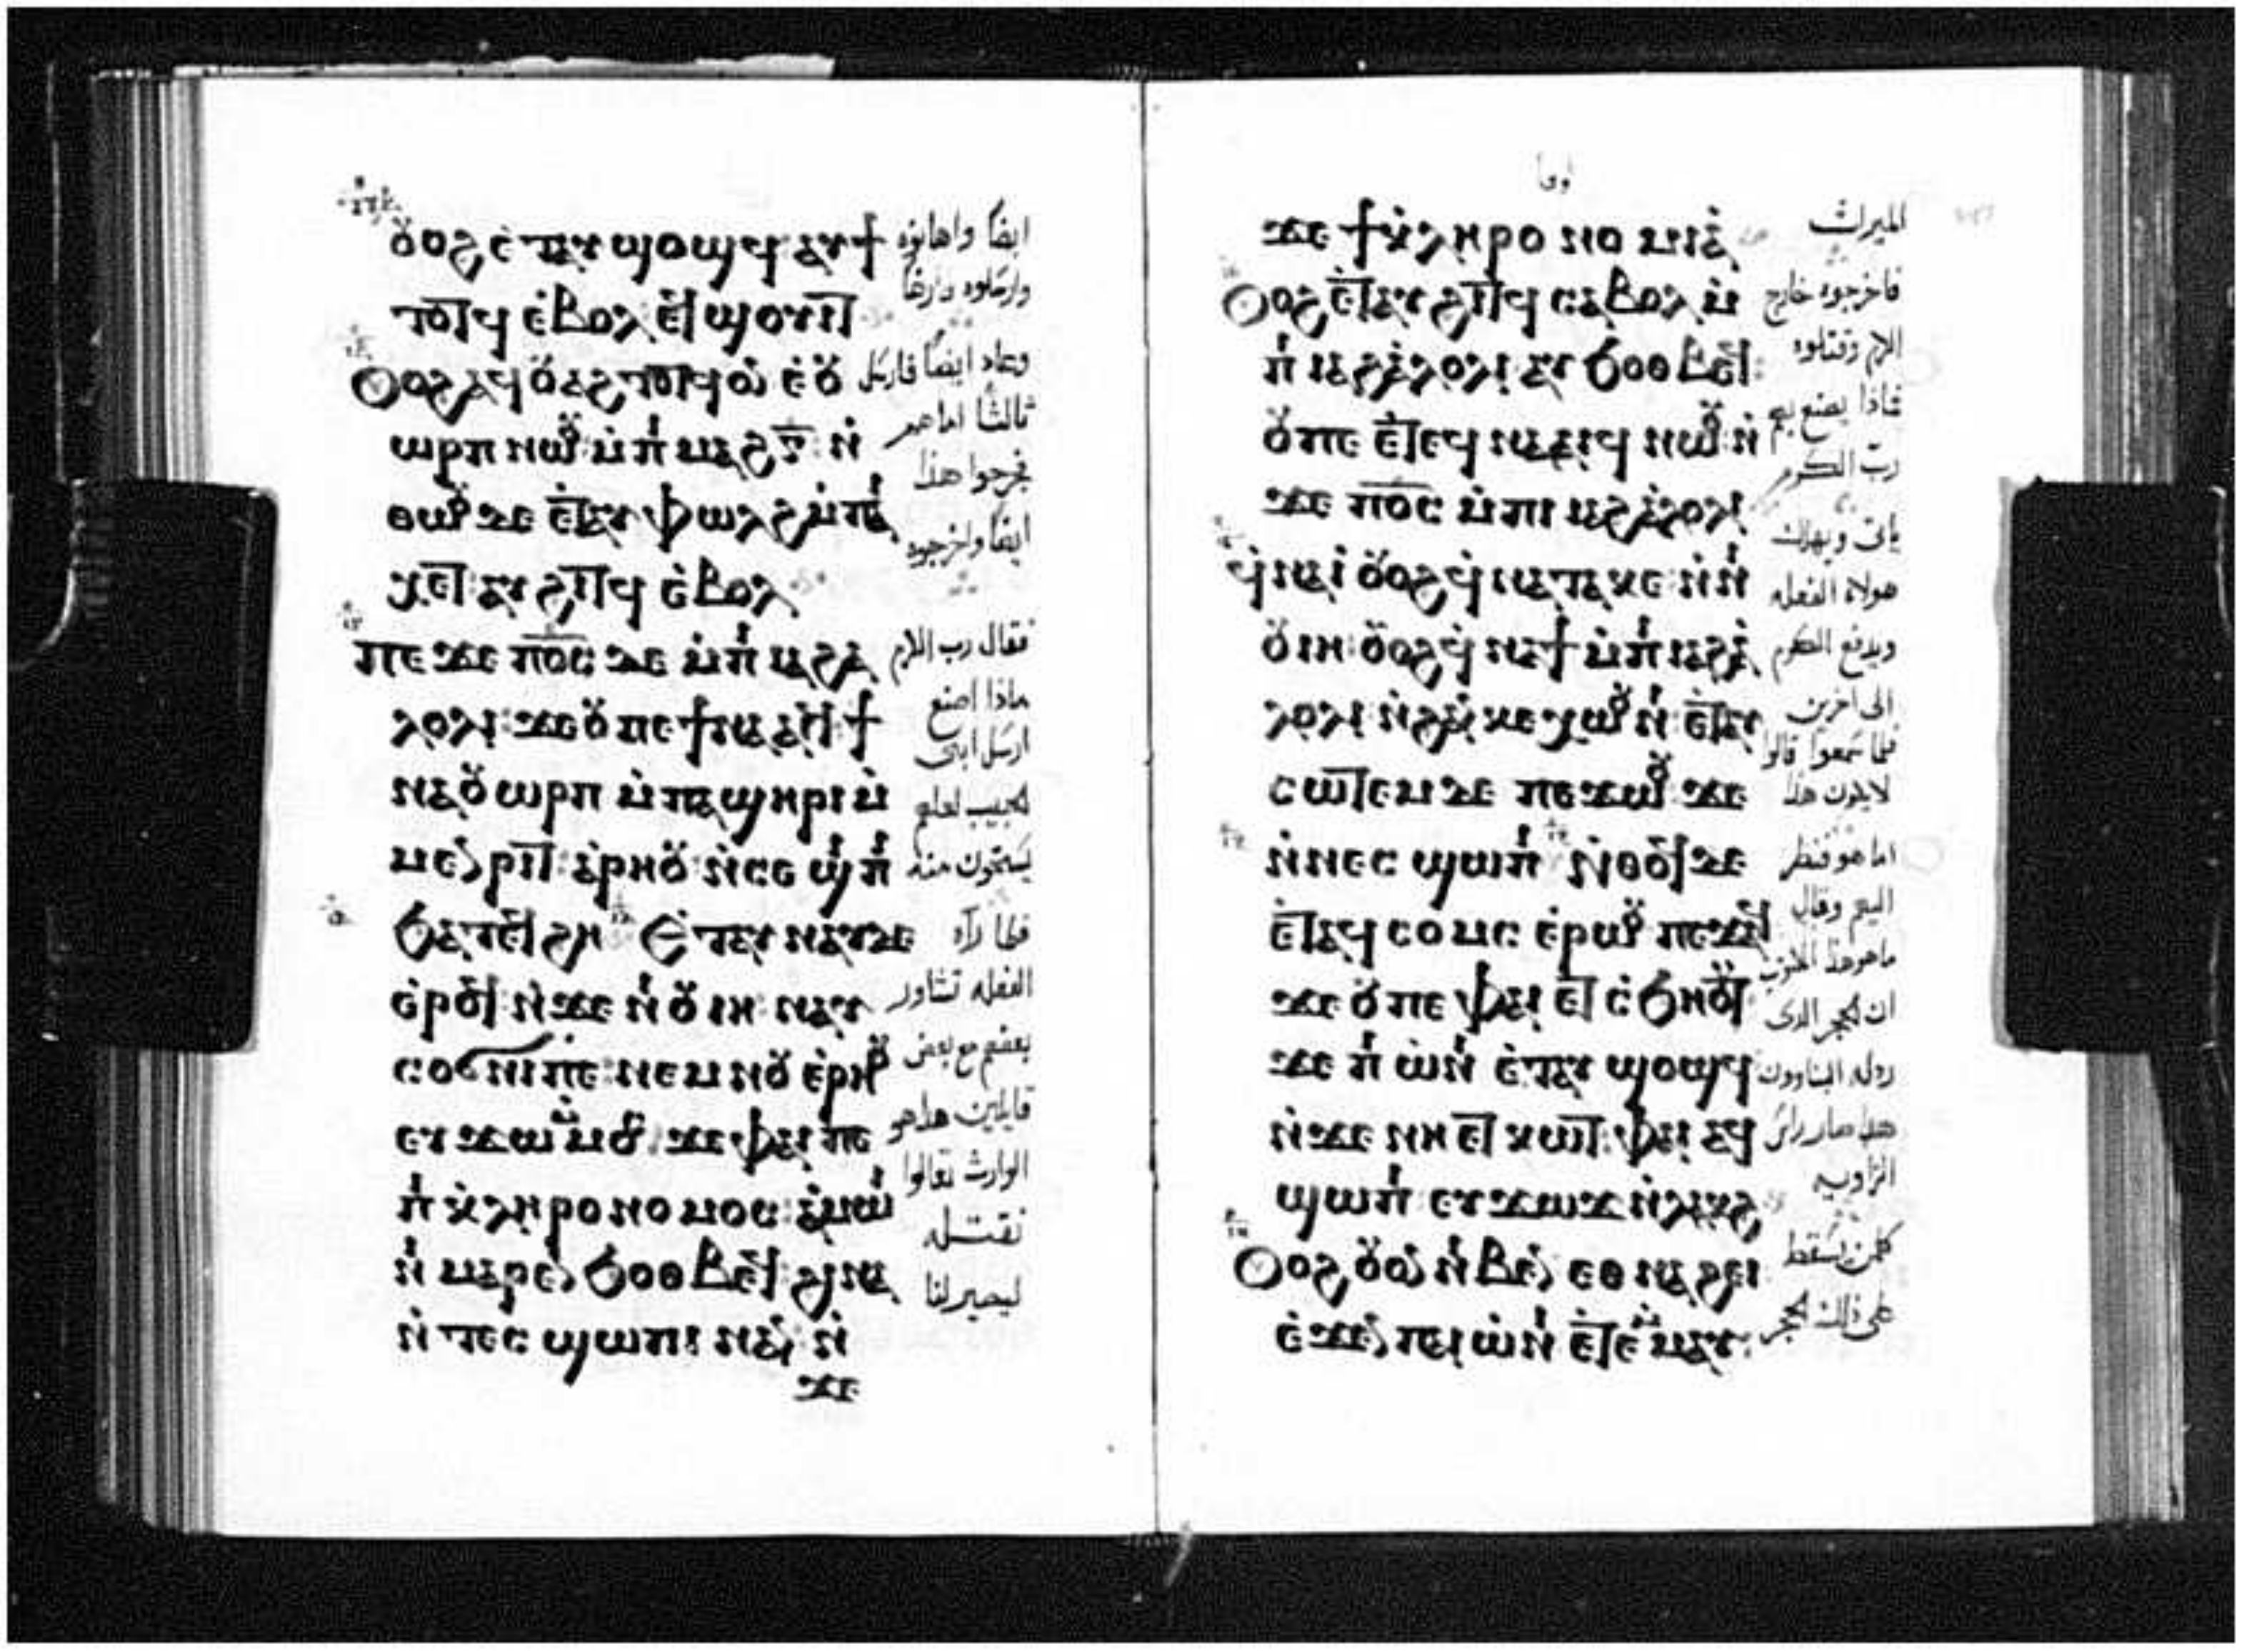 ⲟⲩⲟϩ ⲉ̇ⲧⲁⲩϣⲟϣϥ ⲁⲩϯ
ⲧⲟⲧϥ ⲉ̇ⲃⲟⲗ ⲉϥϣⲟⲩⲓⲧ
Ⲟⲩⲟϩ ⲁϥⲟⲩⲁϩⲧⲟⲧϥ ⲟⲛ ⲉ̇ⲟⲩ
ⲱⲣⲡ ⲛⲱⲟⲩ ⲙ̇ⲡⲓⲙⲁϩⲅ̅ ⲛ̇
ⲑⲱⲟⲩ ⲇⲉ ⲉ̇ⲧⲁⲩⲫⲱⲗϩ ⲙ̇ⲡⲁⲓ
ⲭⲉⲧ ⲁⲩϩⲓⲧϥ ⲉ̇ⲃⲟⲗ
ⲡⲉϫⲉ ⲡⲟ̅ⲥ̅ ⲇⲉ ⲙ̇ⲡⲓⲙⲁϩⲁ̇
ⲗⲟⲗⲓ ϫⲉ ⲟⲩ ⲡⲉϯⲛⲁⲁⲓϥ ϯ
ⲛⲁⲟⲩⲱⲣⲡ ⲙ̇ⲡⲁϣⲏⲣⲓ ⲙ̇
ⲙⲉⲛⲣⲓⲧ ⲁⲣⲏⲟⲩ ⲛ̇ⲥⲉϣⲓⲡⲓ
ϧⲁⲧⲉϥϩⲏ Ⲉ̇ⲧⲁⲩⲛⲁⲩ ⲇⲉ
ⲉ̇ⲣⲟϥ ⲛ̇ϫⲉ ⲛⲓⲟⲩⲓⲏ ⲛⲁⲩ
ⲥⲟϭⲛⲓ ⲡⲉ ⲛⲉⲙ ⲛⲟⲩⲉ̇ⲣⲏⲟⲩ
ⲉⲩϫⲱ ⲙ̇ⲙⲟⲥ ϫⲉ ⲫⲁⲓ ⲡⲉ
ⲡⲓⲕ̇ⲗⲏⲣⲟⲛⲟⲙⲟⲥ ⲁ̇ⲙⲱⲓ
ⲛⲓ ⲙⲁⲣⲉⲛϧⲟⲑⲃⲉϥ ϩⲓⲛⲁ
ⲛ̇ⲧⲉⲥϣⲱⲡⲓ ⲛⲁⲛ ⲛ̇
ϫⲉ
ايضًا واهانوه
وارسلوه فارغًا
وعاد ايضًا فارسل
ثالثًا اما هم
فجرحوا هذا
ايضًا واخرجوه
فقال رب الكرم
ماذا اصنع
ارسل ابنى
الحبيب لعلهم
يستحون منه
فلما رآه
الفعله تشاور
بعضهم مع بعض
قايلين هذا هو
الوارث تعالوا
نقتله
ليصير لنا
ϫⲉ ϯⲕ̇ⲗⲏⲣⲟⲛⲟⲙⲓⲁ̇
Ⲟⲩⲟϩ ⲉ̇ⲧⲁⲩϩⲓⲧϥ ⲥⲁⲃⲟⲗ ⲙ̇
ⲡⲓⲁϩⲁ̇ⲗⲟⲗⲓ ⲁⲩϧⲟⲑⲃⲉϥ
ⲟⲩ ⲡⲉ ⲉ̇ⲧⲉϥⲛⲁⲁⲓϥ ⲛⲱⲟⲩ ⲛ̇
ϫⲉ ⲡⲟ̅ⲥ̅ ⲙ̇ⲡⲓⲙⲁϩⲁ̇ⲗⲟⲗⲓ
ϥⲛⲁⲓ̇ ⲟⲩⲟϩ ϥⲛⲁⲧⲁⲕⲉ ⲛⲓ
ⲟⲩⲓⲏ ⲟⲩⲟϩ ϥⲛⲁϯ ⲙ̇ⲡⲓⲁϩⲁ̇
ⲗⲟⲗⲓ ⲛ̇ϩⲁⲛⲕⲉⲭⲱⲟⲩⲛⲓ ⲉ̇ⲧⲁⲩ
ⲥⲱⲧⲉⲙ ⲇⲉ ⲡⲉϫⲱⲟⲩ ϫⲉ
ⲛ̇ⲛⲉⲥϣⲱⲡⲓ ⲛ̇ⲑⲟϥ ⲇⲉ
ⲉ̇ⲧⲁϥⲥⲟⲙⲥ ⲉ̇ⲣⲱⲟⲩ ⲡⲉϫⲁϥ
ϫⲉ ⲟⲩ ⲡⲉ ⲫⲁⲓ ⲉⲧⲥ̇ϧⲏⲟⲩⲧ
ϫⲉ ⲡⲓⲱ̇ⲛⲓ ⲉ̇ⲧⲁⲩϣⲟϣϥ
ⲛ̇ϫⲉ ⲛⲏⲉⲧⲕⲱⲧ ⲫⲁⲓ ⲁϥ
ϣⲱⲡⲓ ⲉⲩϫⲱϫ ⲛ̇ⲗⲁⲕϩ
Ⲟⲩⲟϩ ⲟⲩⲟⲛ ⲛⲓⲃⲉⲛ ⲉⲑⲛⲁϩⲉⲓ
ⲉ̇ϫⲉⲛ ⲡⲁⲓⲱ̇ⲛⲓ ⲉ̇ⲧⲉⲙ̇ⲙⲁⲩ
الميراث
فاخرجوه خارج
الكرم وقتلوه
فماذا يصنع بهم
ربّ الكرم
ياتى ويهلك
هولاء الفعله
ويدفع الكرم
الى اخرين
فلما سمعوا قالوا
لا يكون هذا
اما هو فنظر
اليهم وقال
ما هو هذا المكتوب
ان الحجر الذى
رذله البناوون
هذا صار راس
الزاويه
كلمن يسقط
على ذلك الحجر